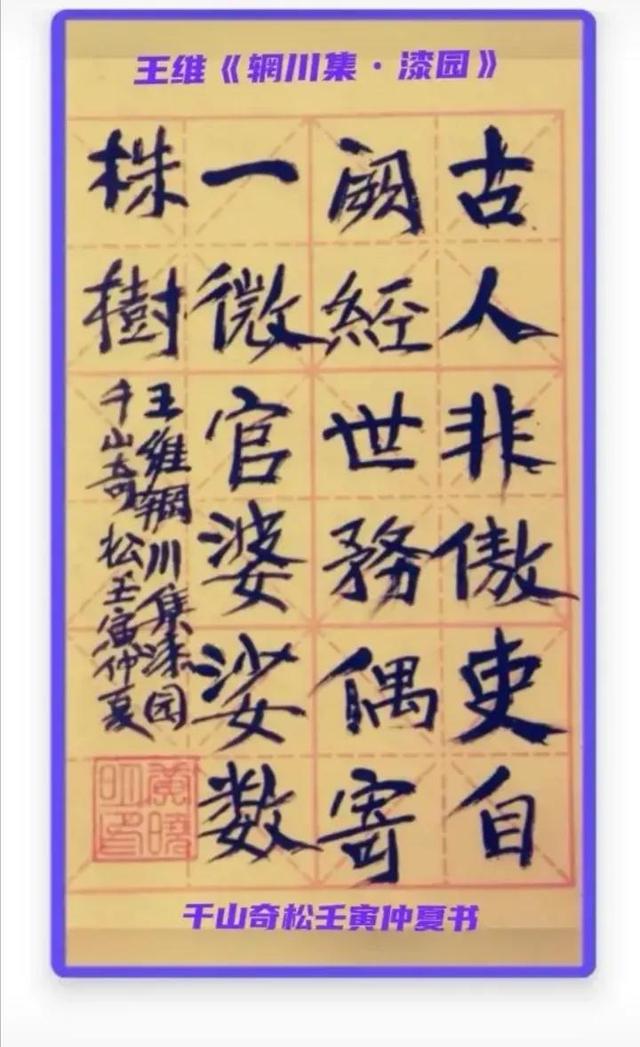 王维《辋川集·漆园》
古人非傲吏自
阙經世務偶寄
一微官婆娑数
株樹
王维辋川集漆园
千山奇松壬寅仲夏
黄晓明印
千山奇松壬寅仲夏书